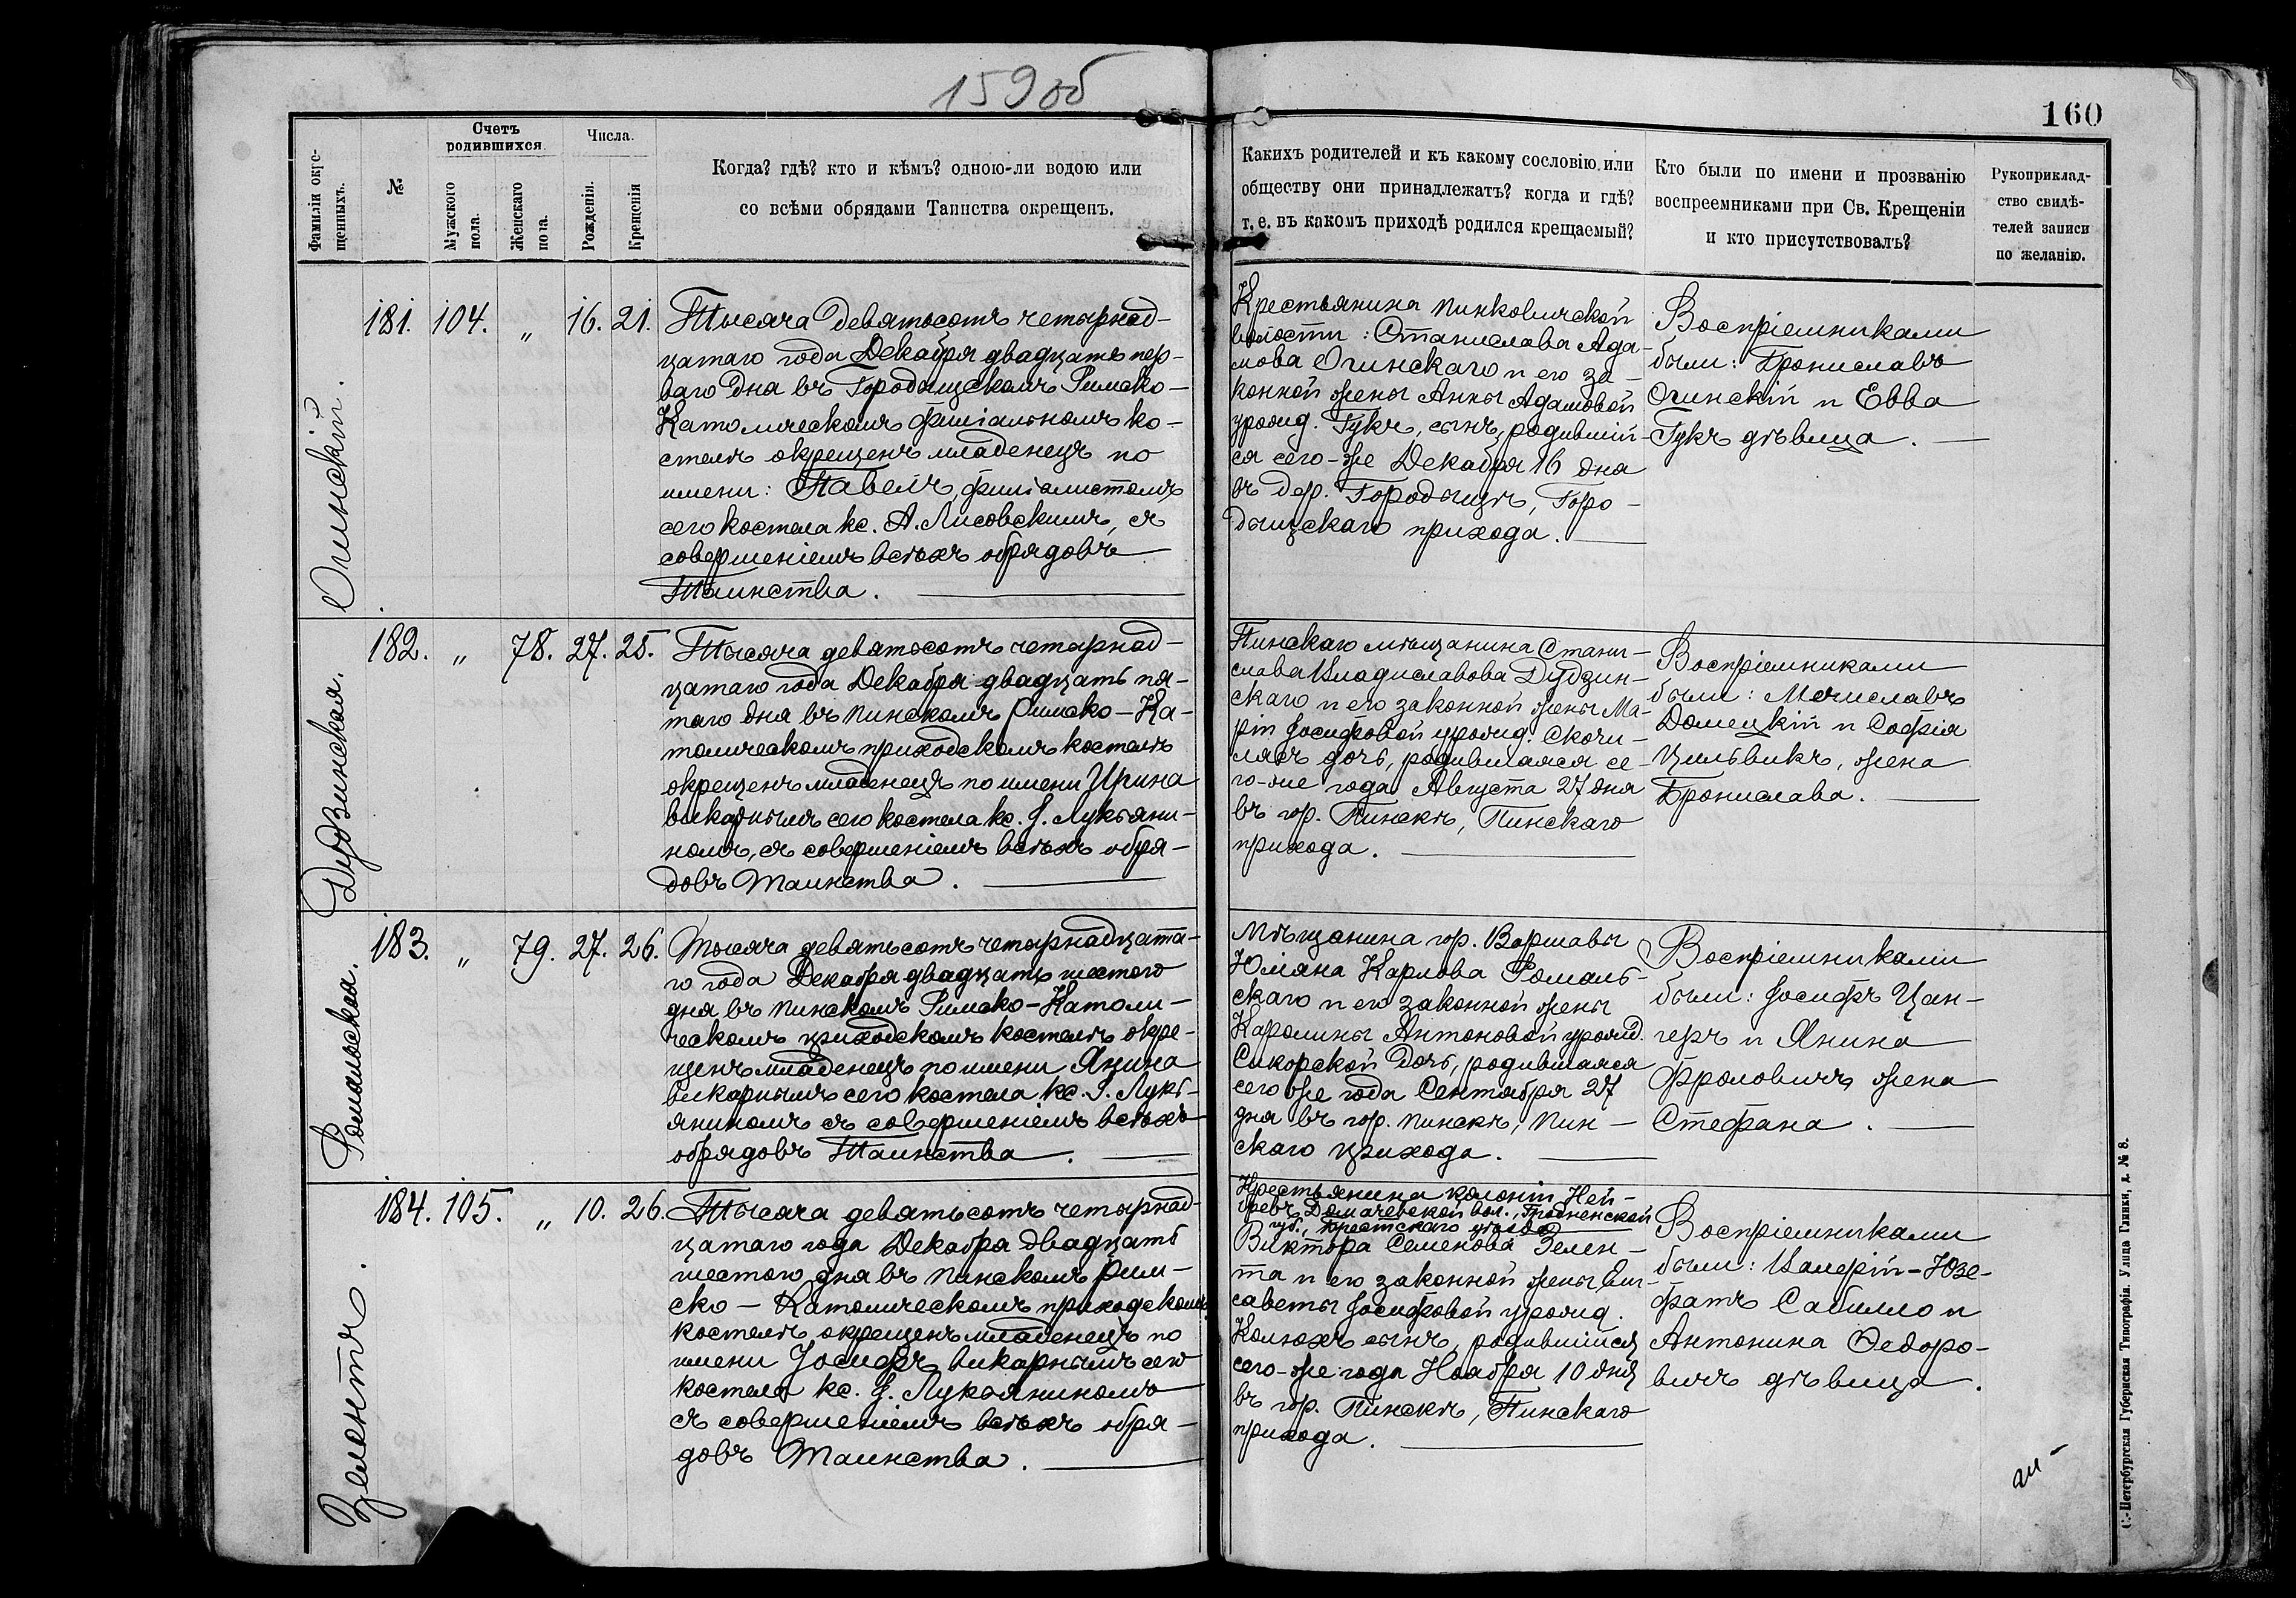 159об
160
Фамиліи окре-
щенныхъ.
№
Счетъ
родившихся.
Мужского
пола.
Женскаго
пола.
Числа.
Рожденія.
Крещенія
Когда? гдѣ? кто и кѣмъ? одною-ли водою или
со всѣми обрядами Таинства окрещенъ.
Какихъ родителей и къ какому сословію или
обществу они принадлежатъ? когда и гдѣ?
т. е. въ какомъ приходѣ родился крещаемый?
Кто были по имени и прозванію
воспреемниками при Св. Крещеніи
и кто присутствовалъ?
Рукоприклад-
ство свидѣ-
телей записи
по желанію.
Огинскій.
181. 104. „ 16. 21.
Тысяча девятьсотъ четырнад-
цатаго года Декабря двадцать пер-
ваго дня въ Городыщскомъ Римско-
Католическомъ филіальномъ ко-
стелѣ окрещенъ младенецъ по
имени: Павелъ, филіалистомъ
сего костела кс. А. Лисовскимъ, съ
совершеніемъ всѣхъ обрядовъ
Таинства.
Крестьянина Пинковичской
волости: Станислава Ада-
мова Огинскаго и его за-
конной жены Анны Адамовой
урожд. Гукъ, сынъ, родившій-
ся сего-же Декабря 16 дня
въ дер. Городыщѣ, Горо-
дыщскаго прихода.
Воспріемниками
были: Брониславъ
Огинскій и Евва
Гукъ дѣвица.
Дудзинская.
182. „ 78. 27. 25.
Тысяча девятьсотъ четырнад-
цатаго года Декабря двадцать пя-
таго дня въ Пинскомъ Римско-Ка-
толическомъ приходскомъ костелѣ
окрещенъ младенецъ по имени Ирина
викарнымъ сего костела кс. І. Лукьяни-
номъ, съ совершеніемъ всѣхъ обря-
довъ Таинства.
Пинскаго мѣщанина Стани-
слава Владиславова Дудзин-
скаго и его законной жены Ма-
ріи Іосифовой урожд. Скочи-
лясъ дочь, родившаяся се-
го-же года Августа 27 дня
въ гор. Пинскѣ, Пинскаго
прихода.
Воспріемниками
были: Мечиславъ
Домецкій и Софія
Цильвикъ, жена
Бронислава.
Романьская.
183. „ 79. 27. 26.
Тысяча девятьсотъ четырнадцата-
го года Декабря двадцать шестого
дня въ Пинскомъ Римско-Католи-
ческомъ приходскомъ костелѣ окре-
щенъ младенецъ по имени Янина
викарнымъ сего костела кс. І. Лукь-
яниномъ съ совершеніемъ всѣхъ
обрядовъ Таинства.
Мѣщанина гор. Варшавы
Юліяна Карлова Романь-
скаго и его законной жены
Каролины Антоновой урожд.
Сикорской дочь, родившаяся
сего же года Сентября 27
дня въ гор. Пинскѣ, Пин-
скаго прихода.
Воспріемниками
были: Іосифъ Цан-
геръ и Янина
Фроловичъ жена
Стефана.
Зелентъ.
184. 105. „ 10. 26.
Тысяча девятьсотъ четырнад-
цатаго года Декабря двадцать
шестого дня въ Пинскомъ Рим-
ско-Католическомъ приходскомъ
костелѣ окрещенъ младенецъ по
имени Іосифъ викарнымъ сего
костела кс. І. Лукьяниномъ
съ совершеніемъ всѣхъ обря-
довъ Таинства.
Крестьянина колоніи Ней-
Бревъ Домачевской вол., Гродненской
губ., Брестскаго уѣзда
Виктора Семенова Зелен-
та и его законной жены Ели-
саветы Іосифовой урожд.
Кользюхъ сынъ, родившійся
сего-же года Ноября 10 дня
въ гор. Пинскѣ, Пинскаго
прихода.
Воспріемниками
были: Валерій-Юзе-
фатъ Сабилло и
Антонина Федоро-
вичъ дѣвица.
С.-Петербургская Губернская Типографія. Улица Глинки, д. № 8.